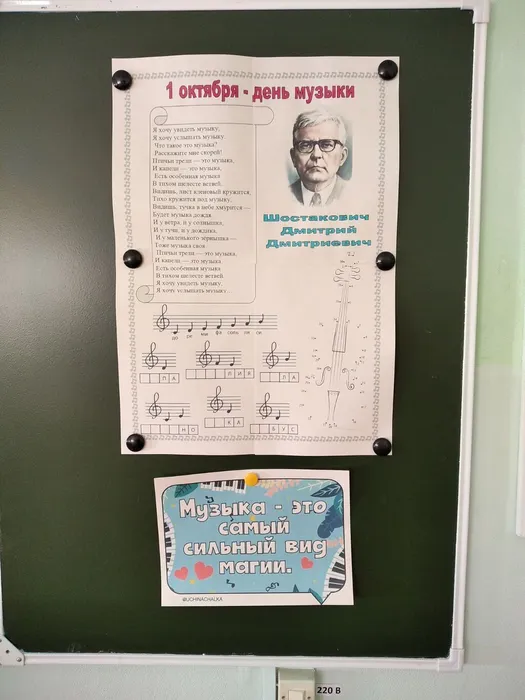 1 октября - день музыки
Я хочу увидеть музыку,
Я хочу услышать музыку.
Что такое это музыка?
Расскажите мне скорей!
Птичьи трели — это музыка,
И капели — это музыка,
Есть особенная музыка
В тихом шелесте ветвей.
Видишь, лист кленовый кружится,
Тихо кружится под музыку.
Видишь, тучка в небе хмурится —
Будет музыка дождя.
И у ветра, и у солнышка,
И у тучи, и у дождика,
И у маленького зёрнышка —
Тоже музыка своя.
Птичьи трели — это музыка,
И капели — это музыка
Есть особенная музыка
В тихом шелесте ветвей
Я хочу увидеть музыку,
Я хочу услышать музыку...
Шостакович
Дмитрий
Дмитриевич
до ре ми фа соль ля си
ПА
ЛИЯ
ЛА
НО
КА
БУС
Музыка - это
самый
сильный вид
магии.
@UCHINACHALKA
220 В